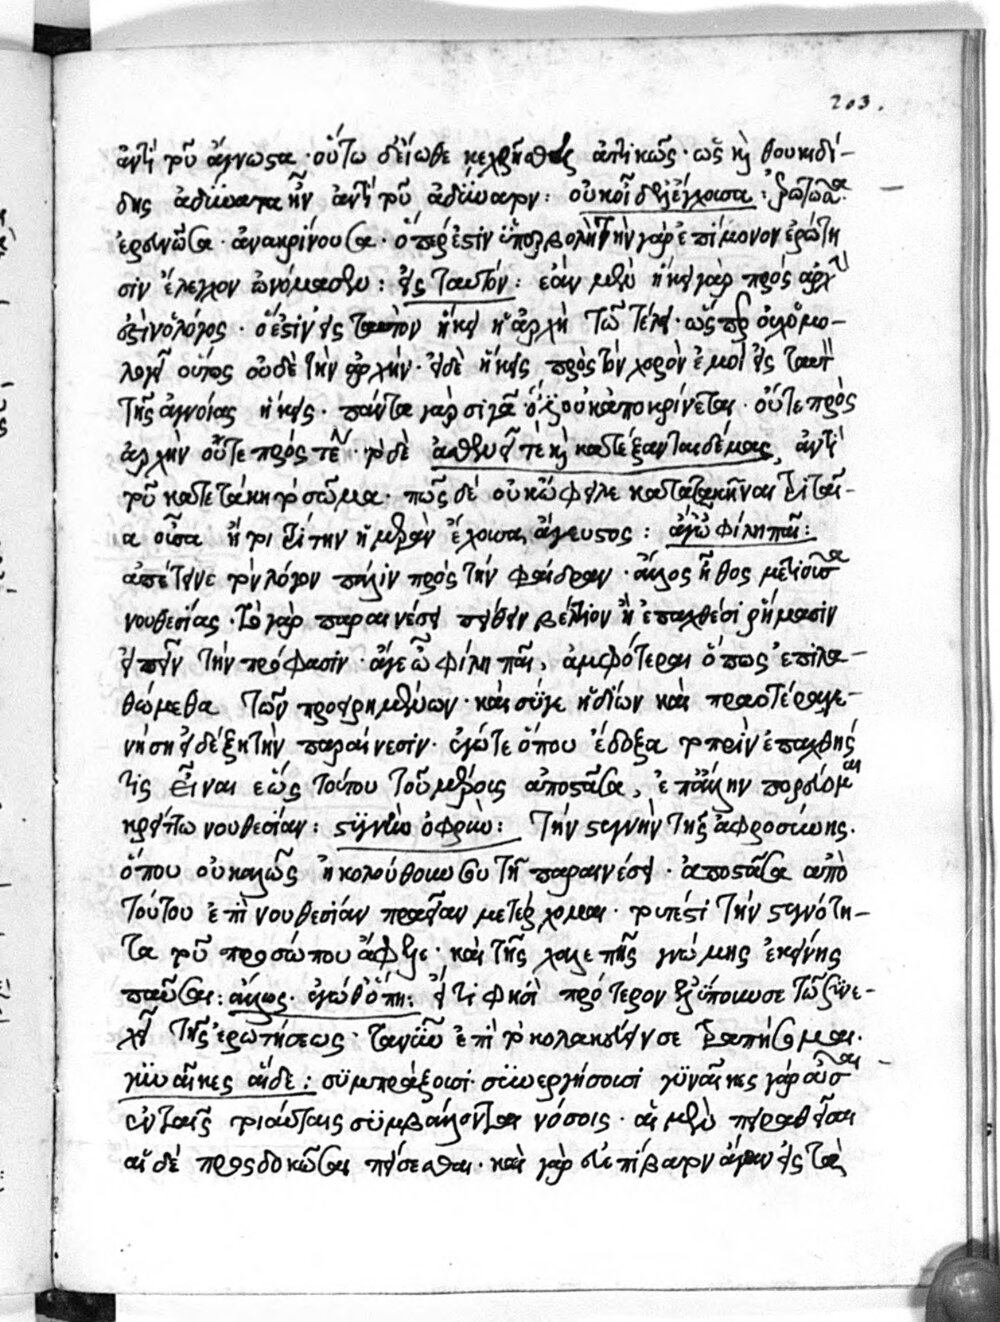 203.
ἀντὶ τοῦ ἄγνωστα · οὕτω δ' εἴωθε κεχρῆσθαι ἀττικῶς · ὡς καὶ θουκιδί-
δης ἀδύνατα ἦν ἀντὶ τοῦ ἀδύνατον : οὐκ οἶδ' ἐλέγχουσα : ἐρωτῶσα
ἐρευνῶσα · ἀνακρίνουσα · ὅπέρ ἐστιν ὑπερβολή τὴν γὰρ ἐπίμονον ἐρώτη
σιν ἔλεγχον ὠνόμασεν : εἰς ταυτὸν : ἐὰν μὲν ἥκει γὰρ πρὸς ἀρχὴν
ὁ λόγος · ὅ ἐστιν εἰς ταυτὸν ἥκει ἡ ἀρχὴ τῷ τέλει · ὥσπερ οὐχ ὡμο-
λόγει οὕτως οὐδὲ τὴν ἀρχὴν · εἰ δὲ ἥκεις πρὸς τὸν χορὸν ἐμοὶ εἰς ταυτὸ
τῆς ἀγνοίας ἥκεις · πάντα γὰρ σιγᾷ οὐκ ἀποκρίνεται · οὔτε πρὸς
ἀρχὴν οὔτε πρὸς τέλος · τὸ δὲ ἀσθενεῖ τε καὶ κατέξανται δέμας, ἀντὶ
τοῦ κατετάκη τὸ σῶμα · πῶς δὲ οὐκ ὤφειλε κατατακῆναι τριταί-
α οὖσα ἤτοι τρίτην ἡμέραν ἔχουσα ἄγευστος : ἀλλ' ὦ φίλη παῖ :
ἀπέτεινε τὸν λόγον πάλιν πρὸς τὴν φαίδραν · ἄλλος ἦθος μετιοῦσα
νουθεσίας · τὸ γὰρ παραινέσει πείθειν βέλτιον ἢ ἐπαχθέσι ῥήμασιν
εἰπεῖν τὴν πρόφασιν · ἄγε ὦ φίλη παῖ, ἀμφότεραι ὅπως ἐπιλα-
θώμεθα τῶν προειρημένων · καὶ σύ γε ἡδίων καὶ πραοτέρα γε-
νήσῃ δέξῃ τὴν παραίνεσιν · ἐγώ τε ὅπου ἔδοξα τὸ πρὶν ἐπαχθής
τις εἶναι ἕως τούτου τοῦ μέρους ἀποστᾶσα, ἐπ' ἄλλην πορεύομαι
κρείττω νουθεσίαν : στυγνὴν ὀφρὺν : τὴν στυγνὴν τῆς ἀφροσύνης.
ὅπου οὐ καλῶς ἠκολούθουν σου τῇ παραινέσει · ἀποστᾶσα ἀπὸ
τούτου ἐπὶ νουθεσίαν πρᾶξαν μετέρχομαι · τουτέστι τὴν στυγνότη-
τα τοῦ προσώπου ἄφες · καὶ τῆς χαλεπῆς γνώμης ἐκείνης
παῦσαι : ἄλλως · ἐγώ θ' ὅπη : εἴ τι φησὶ πρότερον ἐξύπουσε τῷ συνε-
χεῖ τῆς ἐρωτήσεως · τανῦν ἐπὶ τὸ κολακεύειν σε τραπήσομαι ·
γυναῖκες αἵδε : συμπράξουσι · συνεργήσουσι γυναῖκες γὰρ οὖσαι
ἐν ταῖς τοιαύταις συμβάλλονται νόσοις · αἱ μὲν πειραθεῖσαι
αἱ δὲ προσδοκῶσαι πείσεσθαι · καὶ γὰρ οὐκ ἐπίβαρυν ἄγαν εἰς τὰς